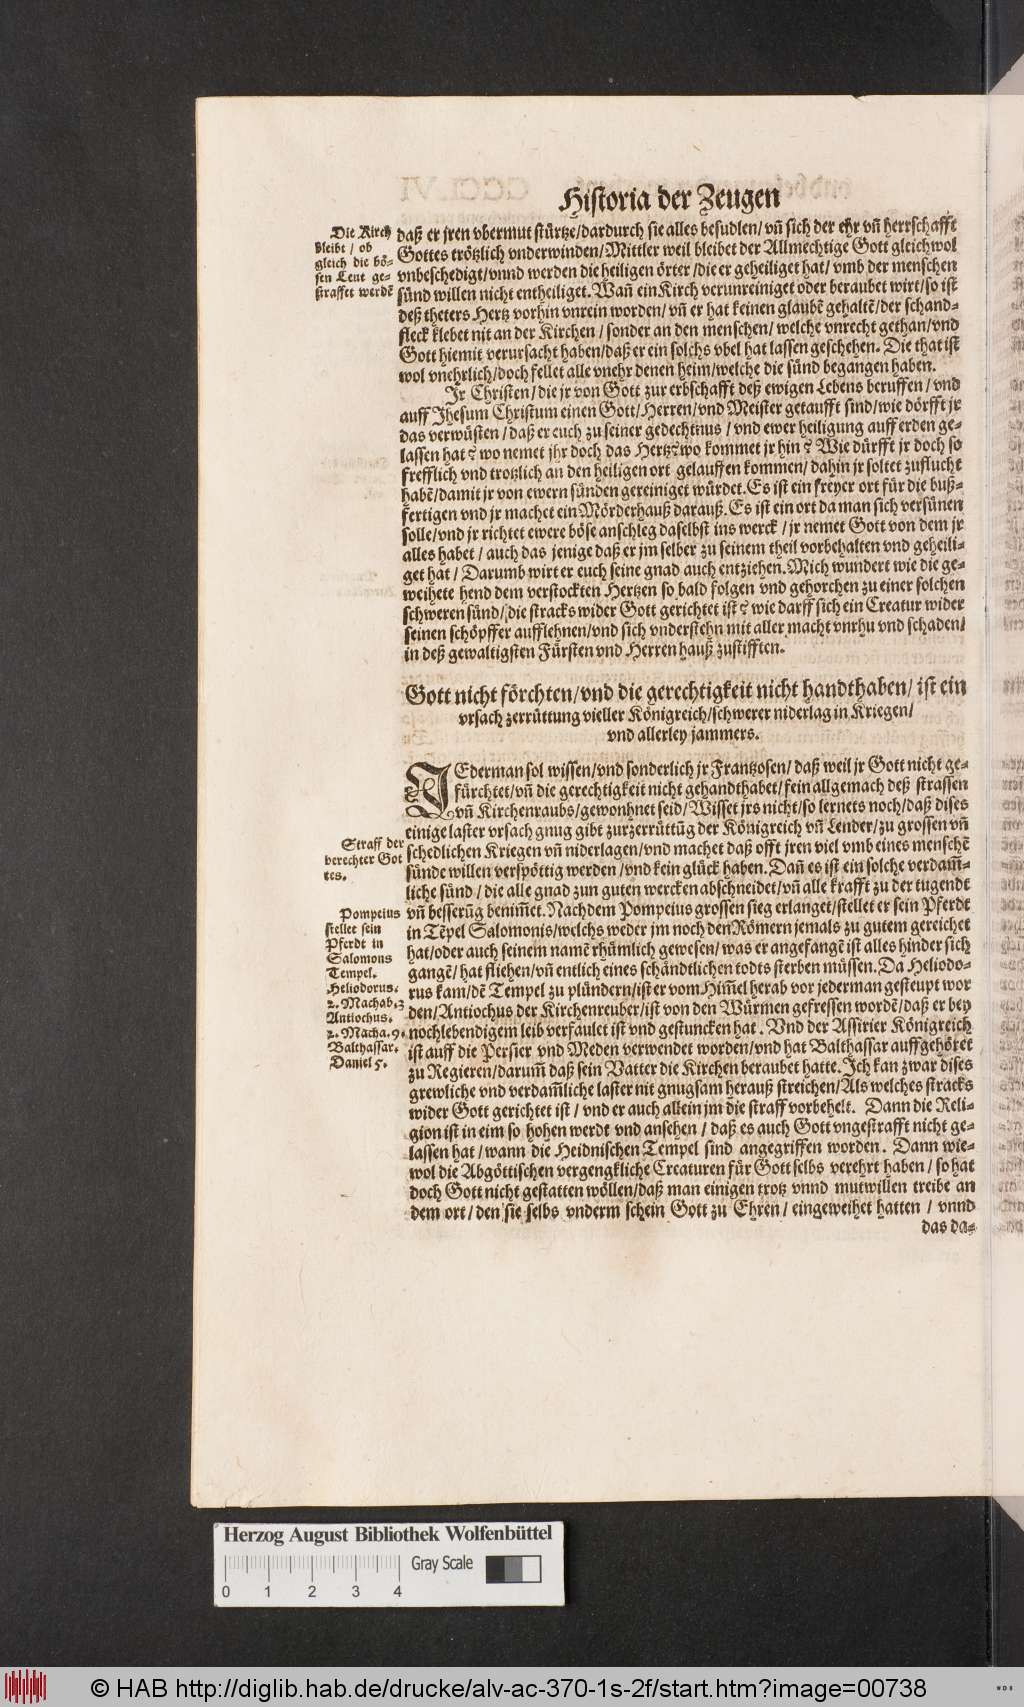 Historia der Zeugen
Die Kirch
bleibt / ob
gleich die bö-
sen Leut ge-
straffet werdē
daß er jren vbermut stürtze/dardurch sie alles besudlen/vñ sich der ehr vñ herrschafft
Gottes trötzlich vnderwinden/Mittler weil bleibet der Allmechtige Gott gleichwol
vnbeschedigt/vnnd werden die heiligen örter/die er geheiliget hat/vmb der menschen
sünd willen nicht entheiliget. Wañ ein Kirch verunreiniget oder beraubet wirt/so ist
deß theters Hertz vorhin vnrein worden/vñ er hat keinen glaubē gehaltē/der schand-
fleck klebet nit an der Kirchen/sonder an den menschen/welche vnrecht gethan/vnd
Gott hiemit verursacht haben/daß er ein solchs vbel hat lassen geschehen. Die that ist
wol vnehrlich/doch fellet alle vnehr denen heim/welche die sünd begangen haben.
Jr Christen/die jr von Gott zur erbschafft deß ewigen Lebens beruffen/vnd
auff Jhesum Christum einen Gott/Herren/vnd Meister getaufft sind/wie dörfft jr
das verwüsten/daß er euch zu seiner gedechtnus/vnd ewer heiligung auff erden ge-
lassen hat? wo nemet jhr doch das Hertz? wo kommet jr hin? Wie dürfft jr doch so
frefflich vnd trotzlich an den heiligen ort gelauffen kommen/dahin jr soltet zuflucht
habē/damit jr von ewern sünden gereiniget würdet. Es ist ein freyer ort für die buß-
fertigen vnd jr machet ein Mörderhauß darauß. Es ist ein ort da man sich versünen
solle/vnd jr richtet ewere böse anschleg daselbst ins werck/jr nemet Gott von dem jr
alles habet/auch das jenige daß er jm selber zu seinem theil vorbehalten vnd geheili-
get hat/Darumb wirt er euch seine gnad auch entziehen. Mich wundert wie die ge-
weihete hend dem verstockten Hertzen so bald folgen vnd gehorchen zu einer solchen
schweren sünd/die stracks wider Gott gerichtet ist? wie darff sich ein Creatur wider
seinen schöpffer aufflehnen/vnd sich vnderstehn mit aller macht vnrhu vnd schaden/
in deß gewaltigsten Fürsten vnd Herren hauß zustifften.
Gott nicht förchten/vnd die gerechtigkeit nicht handthaben/ist ein
vrsach zerrüttung vieller Königreich/schwerer niderlag in Kriegen/
vnd allerley jammers.
JEderman sol wissen/vnd sonderlich jr Frantzosen/daß weil jr Gott nicht ge-
fürchtet/vñ die gerechtigkeit nicht gehandthabet/fein allgemach deß strassen
vñ Kirchenraubs/gewonhnet seid/Wisset jrs nicht/so lernets noch/daß dises
einige laster vrsach gnug gibt zur zerrüttūg der Königreich vñ Lender/zu grossen vñ
schedlichen Kriegen vñ niderlagen/vnd machet daß offt jren viel vmb eines menschē
sünde willen verspöttig werden/vnd kein glück haben. Dañ es ist ein solche verdam̄-
liche sünd/die alle gnad zun guten wercken abschneidet/vñ alle krafft zu der tugendt
vñ besserūg benim̄et. Nachdem Pompeius grossen sieg erlanget/stellet er sein Pferdt
in Tēpel Salomonis/welchs weder jm noch den Römern jemals zu gutem gereichet
hat/oder auch seinem namē rhümlich gewesen/was er angefangē ist alles hinder sich
gangē/hat fliehen/vñ entlich eines schändtlichen todts sterben müssen. Da Heliodo-
rus kam/dē Tempel zu plündern/ist er vom Him̄el herab vor jederman gesteupt wor
den/Antiochus der Kirchenreuber/ist von den Würmen gefressen wordē/daß er bey
noch lebendigem leib verfaulet ist vnd gestuncken hat. Vnd der Assirier Königreich
ist auff die Persier vnd Meden verwendet worden/vnd hat Balthassar auffgehöret
zu Regieren/darum̄ daß sein Vatter die Kirchen beraubet hatte. Ich kan zwar dises
grewliche vnd verdam̄liche laster nit gnugsam herauß streichen/Als welches stracks
wider Gott gerichtet ist/vnd er auch allein jm die straff vorbehelt. Dann die Reli-
gion ist in eim so hohen werdt vnd ansehen/daß es auch Gott vngestrafft nicht ge-
lassen hat/wann die Heidnischen Tempel sind angegriffen worden. Dann wie-
wol die Abgöttischen vergengkliche Creaturen für Gott selbs verehrt haben/so hat
doch Gott nicht gestatten wöllen/daß man einigen trotz vnnd mutwillen treibe an
dem ort/den sie selbs vnderm schein Gott zu Ehren/eingeweihet hatten/vnnd
das da-
Straff der
berechter Got
tes.
Pompeius
stellet sein
Pferdt in
Salomons
Tempel.
Heliodorus.
2. Machab. 3
Antiochus.
2. Macha. 9.
Balthassar.
Daniel 5.
Herzog August Bibliothek Wolfenbüttel
Gray Scale
0 1 2 3 4
© HAB http://diglib.hab.de/drucke/alv-ac-370-1s-2f/start.htm?image=00738